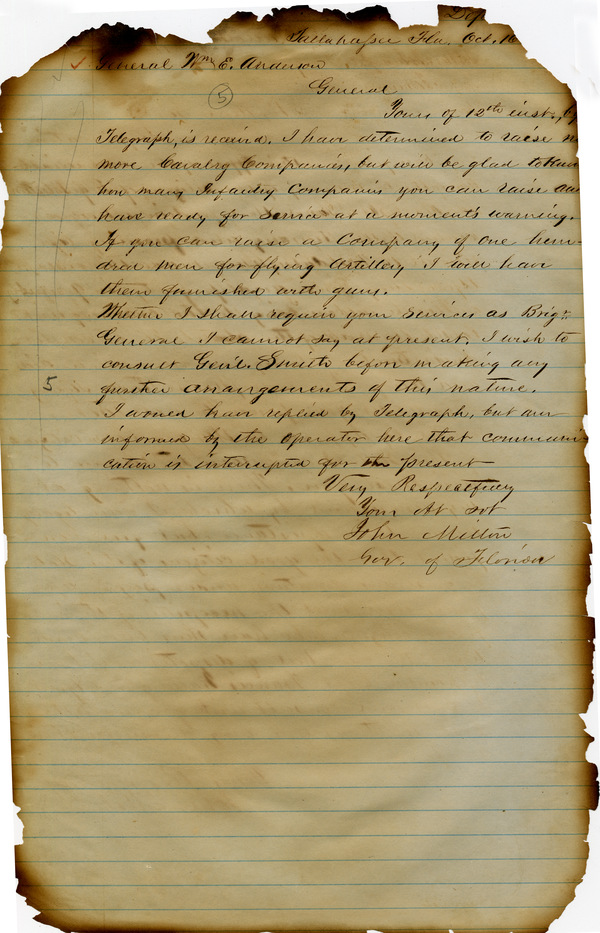 Dep
Tallahassee Fla, Oct, 16
General Wm E. Anderson
5
General
Yours of 12th inst., by
Telegraph, is received. I have determined to raise no
more Cavalry Companies, but will be glad to
how many Infantry Companies you can raise and
have ready for Service at a moment's warning.
If you can raise a Company of one hun-
dred men for flying Artillery I will have
them furnished with guns.
Whether I shall require your Services as Brig.
General I cannot say at present. I wish to
consult Genl. Smith before making any
5
further arrangements of this nature.
I would have replied by Telegraph, but am
informed by the operator here that communi
cation is interrupted for the present
Very Respectfully
Your Ob svt
John Milton
Gov. of Florida